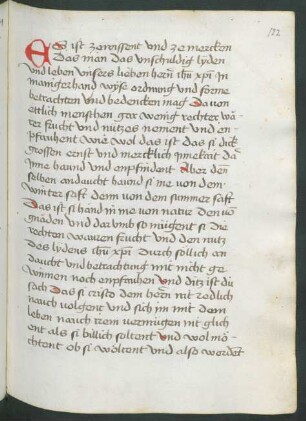 122
Es ist ze wissent vnd ze mercken
Das man das vnschuldig lyden
vnd leben vnsers lieben herñ ihũ xp̃i in
maniger hand wyse ordnung vnd forme
betrachten vnd bedencken mag Da von
ettlich menschen gar wenig rechter wa
rer frucht vnd nutzes nement vnd en
pfahent wie wol das ist das si dick
grossen ernst vnd mercklich innekeit dar
inne hand vnd enpfindent Aber den
selben andacht hand si me von dem
winter saft denn von dem summer saft
Das ist si hand in me von natur den võ
gnaden vnd dar vmb so mügent si die
rechten waren frucht vnd den nutz
des lydens ihũ xp̃i durch sollich an
daucht vnd betrachtung mit nicht ge
winnen noch enpfahen vnd ditz ist die
sach Das si cristo dem herñ nit redlich
nauch volgent vnd sich im mit dem
leben nauch irem vermügen nit glich
ent als si billich soltent vnd wol mö
chtent ob si woltent vnd also werdent